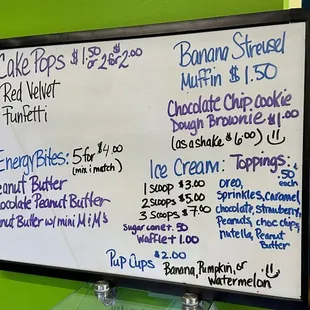 Cake Pops $1.50
or 2 for $2.00
Red Velvet
Funfetti
Banana Streusel
Muffin $1.50
Chocolate Chip Cookie
Dough Brownie $1.00
(as a shake $6.00)
Energy Bites: 5 for $4.00
(mix & match)
eanut Butter
hocolate Peanut Butter
anut Butter w/ mini M&M's
Ice Cream:
1 scoop $3.00
2 scoops $5.00
3 scoops $7.00
Sugar cone +.50
Waffle +1.00
Toppings: +.50
each
oreo,
Sprinkles, Caramel,
chocolate, strawberry,
Peanuts, choc chips,
nutella, Peanut
Butter
Pup Cups $2.00
Banana, Pumpkin, or
Watermelon